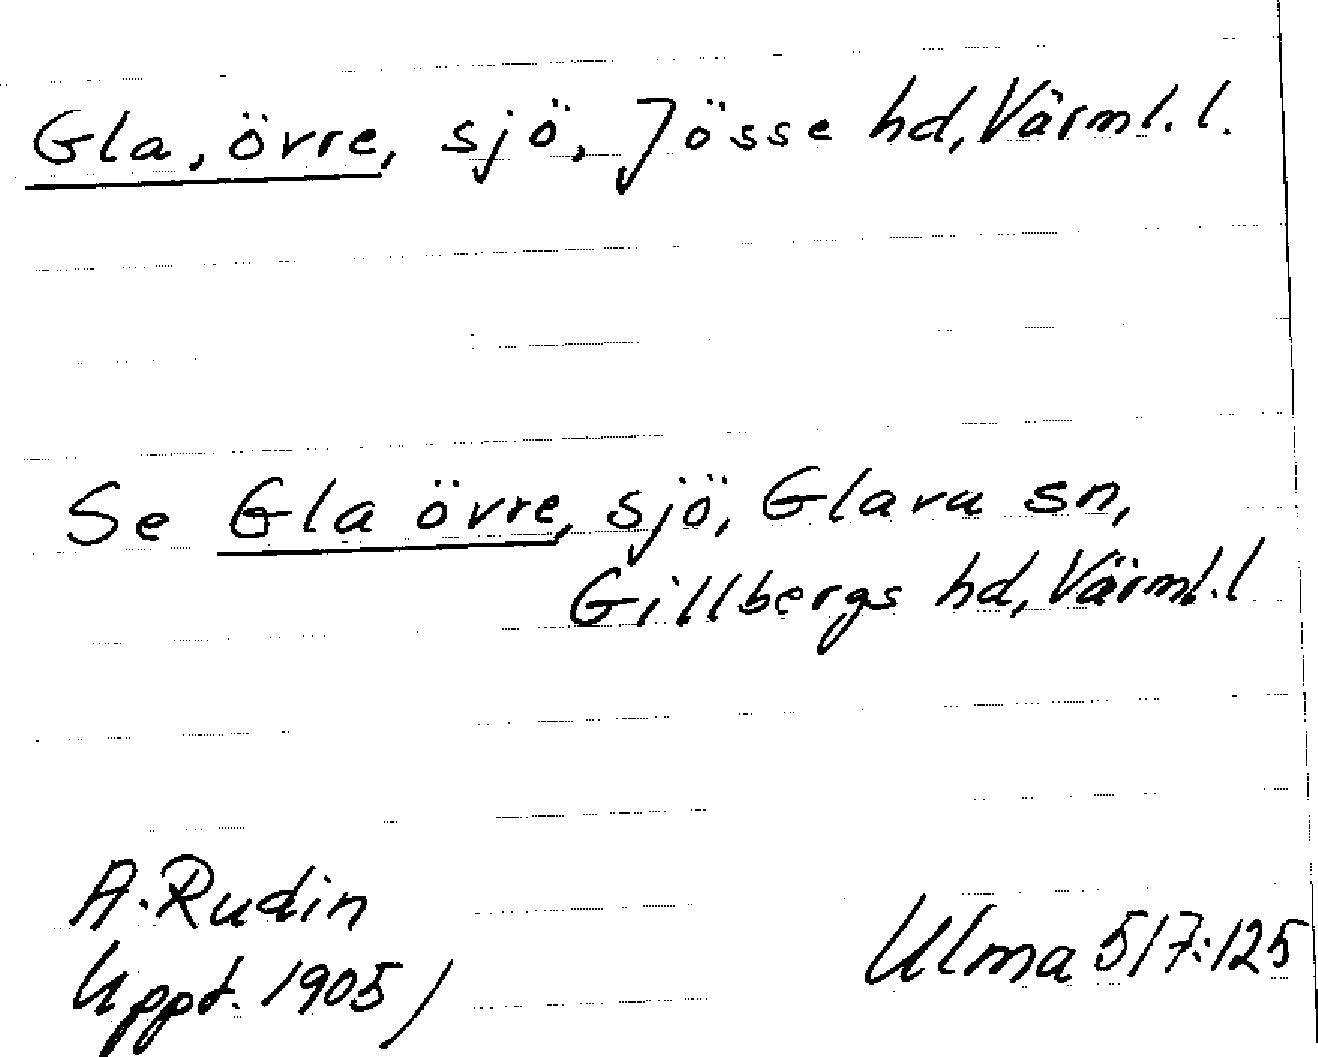 Gla, övre, sjö, Jösse hd, Värml. l.
Se Gla övre, sjö, Glava sn,
Gillbergs hd, Värml. l
A. Rudin
Uppt. 1905)
Ulma 517:125